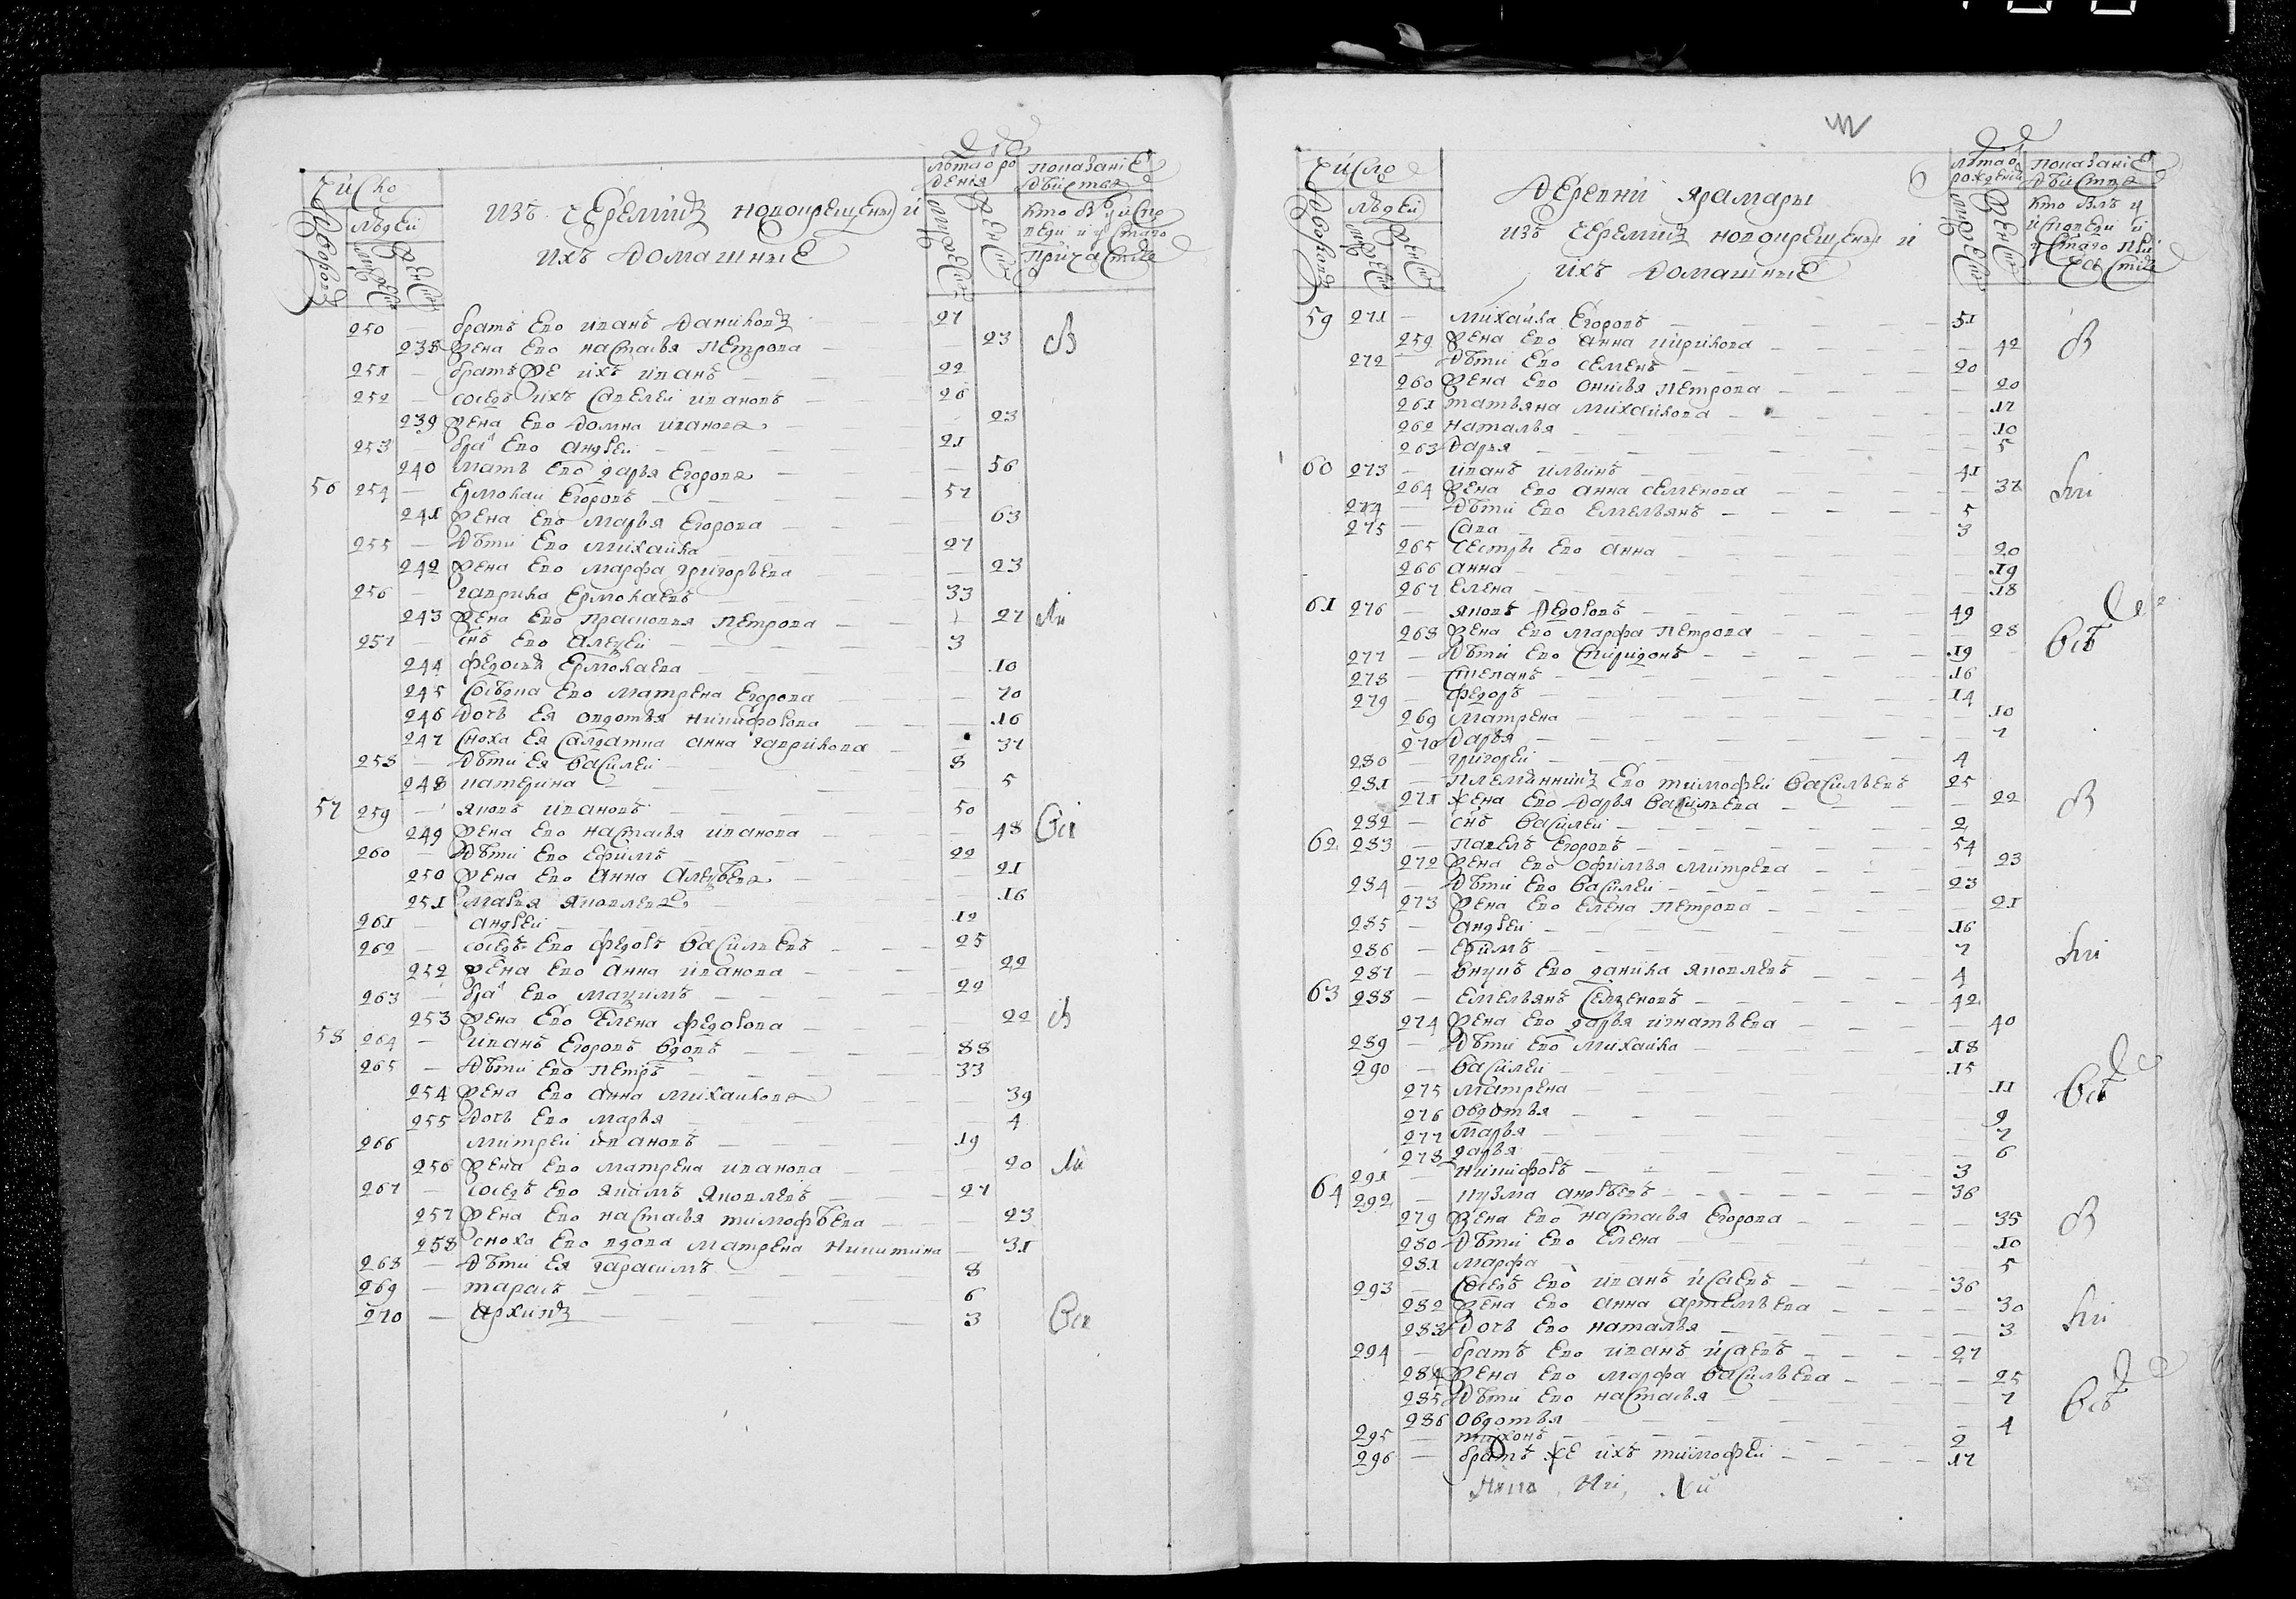 Число
Дворовъ
Людей
мужеск
женск
изъ черемисъ новокрещены и
ихъ домашные
лѣта о рождения
мужеск
женск
показание действа
кто былъ у испо
веди и у святаго
причастия
250 — братъ ево иванъ Даниловъ 27
238 жена ево настасья Петрова 23
251 — братъ же ихъ иванъ 22
252 — соседъ ихъ Савелей ивановъ 26
239 жена ево домна иванова 23
253 бра ево андрей 21
240 мать ево дарья Егорова 56
56 254 — Ермолай Егоровъ 57
241 жена ево марья Егорова 63
255 — дѣти ево михайла 27
242 жена ево марфа григорьева 23
256 — гаврила Ермолаевъ 33
243 жена ево прасковья петрова 27
257 снъ ево алеѯей 3
244 федосья Ермолаева 10
245 соседка ево матрена Егорова 70
246 дочь ея овдотья никифорова 16
247 сноха ея салдатка анна гаврилова 37
258 — дѣти ея василей 8
248 катерина 5
57 259 — яковъ ивановъ 50
249 жена ево настасья иванова 48
260 — дѣти ево ефимъ 22
250 жена ево анна алеѯѣева 21
251 мавра яковлева 16
261 андрей 12
262 — соседъ ево федоръ васильевъ 25
252 жена ево анна иванова 22
263 — бра ево маѯимъ 22
253 жена ево елена федорова 22
58 264 — иванъ Егоровъ вдовъ 88
265 — дѣти ево петръ 33
254 жена ево анна михайлова 39
255 дочь ево марья 4
266 митрей ивановъ 19
256 жена ево матрена иванова 20
267 — соседъ ево якимъ яковлевъ 27
257 жена ево настасья тимофѣева 23
258 сноха ево вдова матрена никитина 31
268 — дѣти ея гарасимъ 8
269 — тарасъ 6
270 — архипъ 3
Число
Дворовъ
Людей
мужеск
женск
Деревни ярамары
изъ черемисъ новокрещены и
ихъ домашные
лѣта о рождении
мужеск
женск
показание действа
кто былъ у
исповеди и
у святаго при
частия
59 271 — михайла Егоровъ 51
259 жена ево анна кирилова 42
272 — дѣти ево семенъ 20
260 жена ево онисья петрова 20
261 татьяна михайлова 17
262 наталья 10
263 дарья 5
60 273 — иванъ ильинъ 41
264 жена ево анна семенова 37
274 — дѣти ево емельянъ 5
275 — сава 3
265 сестры ево анна 20
266 анна 19
267 елена 18
61 276 — яковъ федоровъ 49
268 жена ево марфа петрова 28
277 — дѣти ево спиридонъ 19
278 — степанъ 16
279 — федоръ 14
269 матрена 10
270 дарья 7
280 — григорей 4
281 — племянникъ ево тимофей васильевъ 25
271 жена ево дарья васильева 22
282 — снъ василей 2
62 283 — павелъ Егоровъ 54
272 жена ево офимья митрева 23
284 — дѣти ево василей 23
273 жена ево елена петрова 21
285 — андрей 16
286 — ефимъ 7
287 — внукъ ево данила яковлевъ 4
63 288 — емельянъ семеновъ 42
274 жена ево дарья игнатьева 40
289 — дѣти ево михайла 18
290 — василей 15
275 матрена 11
276 овдотья 9
277 марья 7
278 дарья 6
291 — никифоръ 3
64 292 — кузма андрѣевъ 36
279 жена ево настасья Егорова 35
280 дѣти ево елена 10
281 марфа 5
293 — соседъ ево иванъ исаевъ 36
282 жена ево анна артемьева 30
283 дочь ево наталья 3
294 — братъ ево иванъ исаевъ 27
284 жена ево марфа васильева 25
285 дѣти ево настасья 7
286 овдотья 4
295 — тихонъ 2
296 — братъ же ихъ тимофей 17